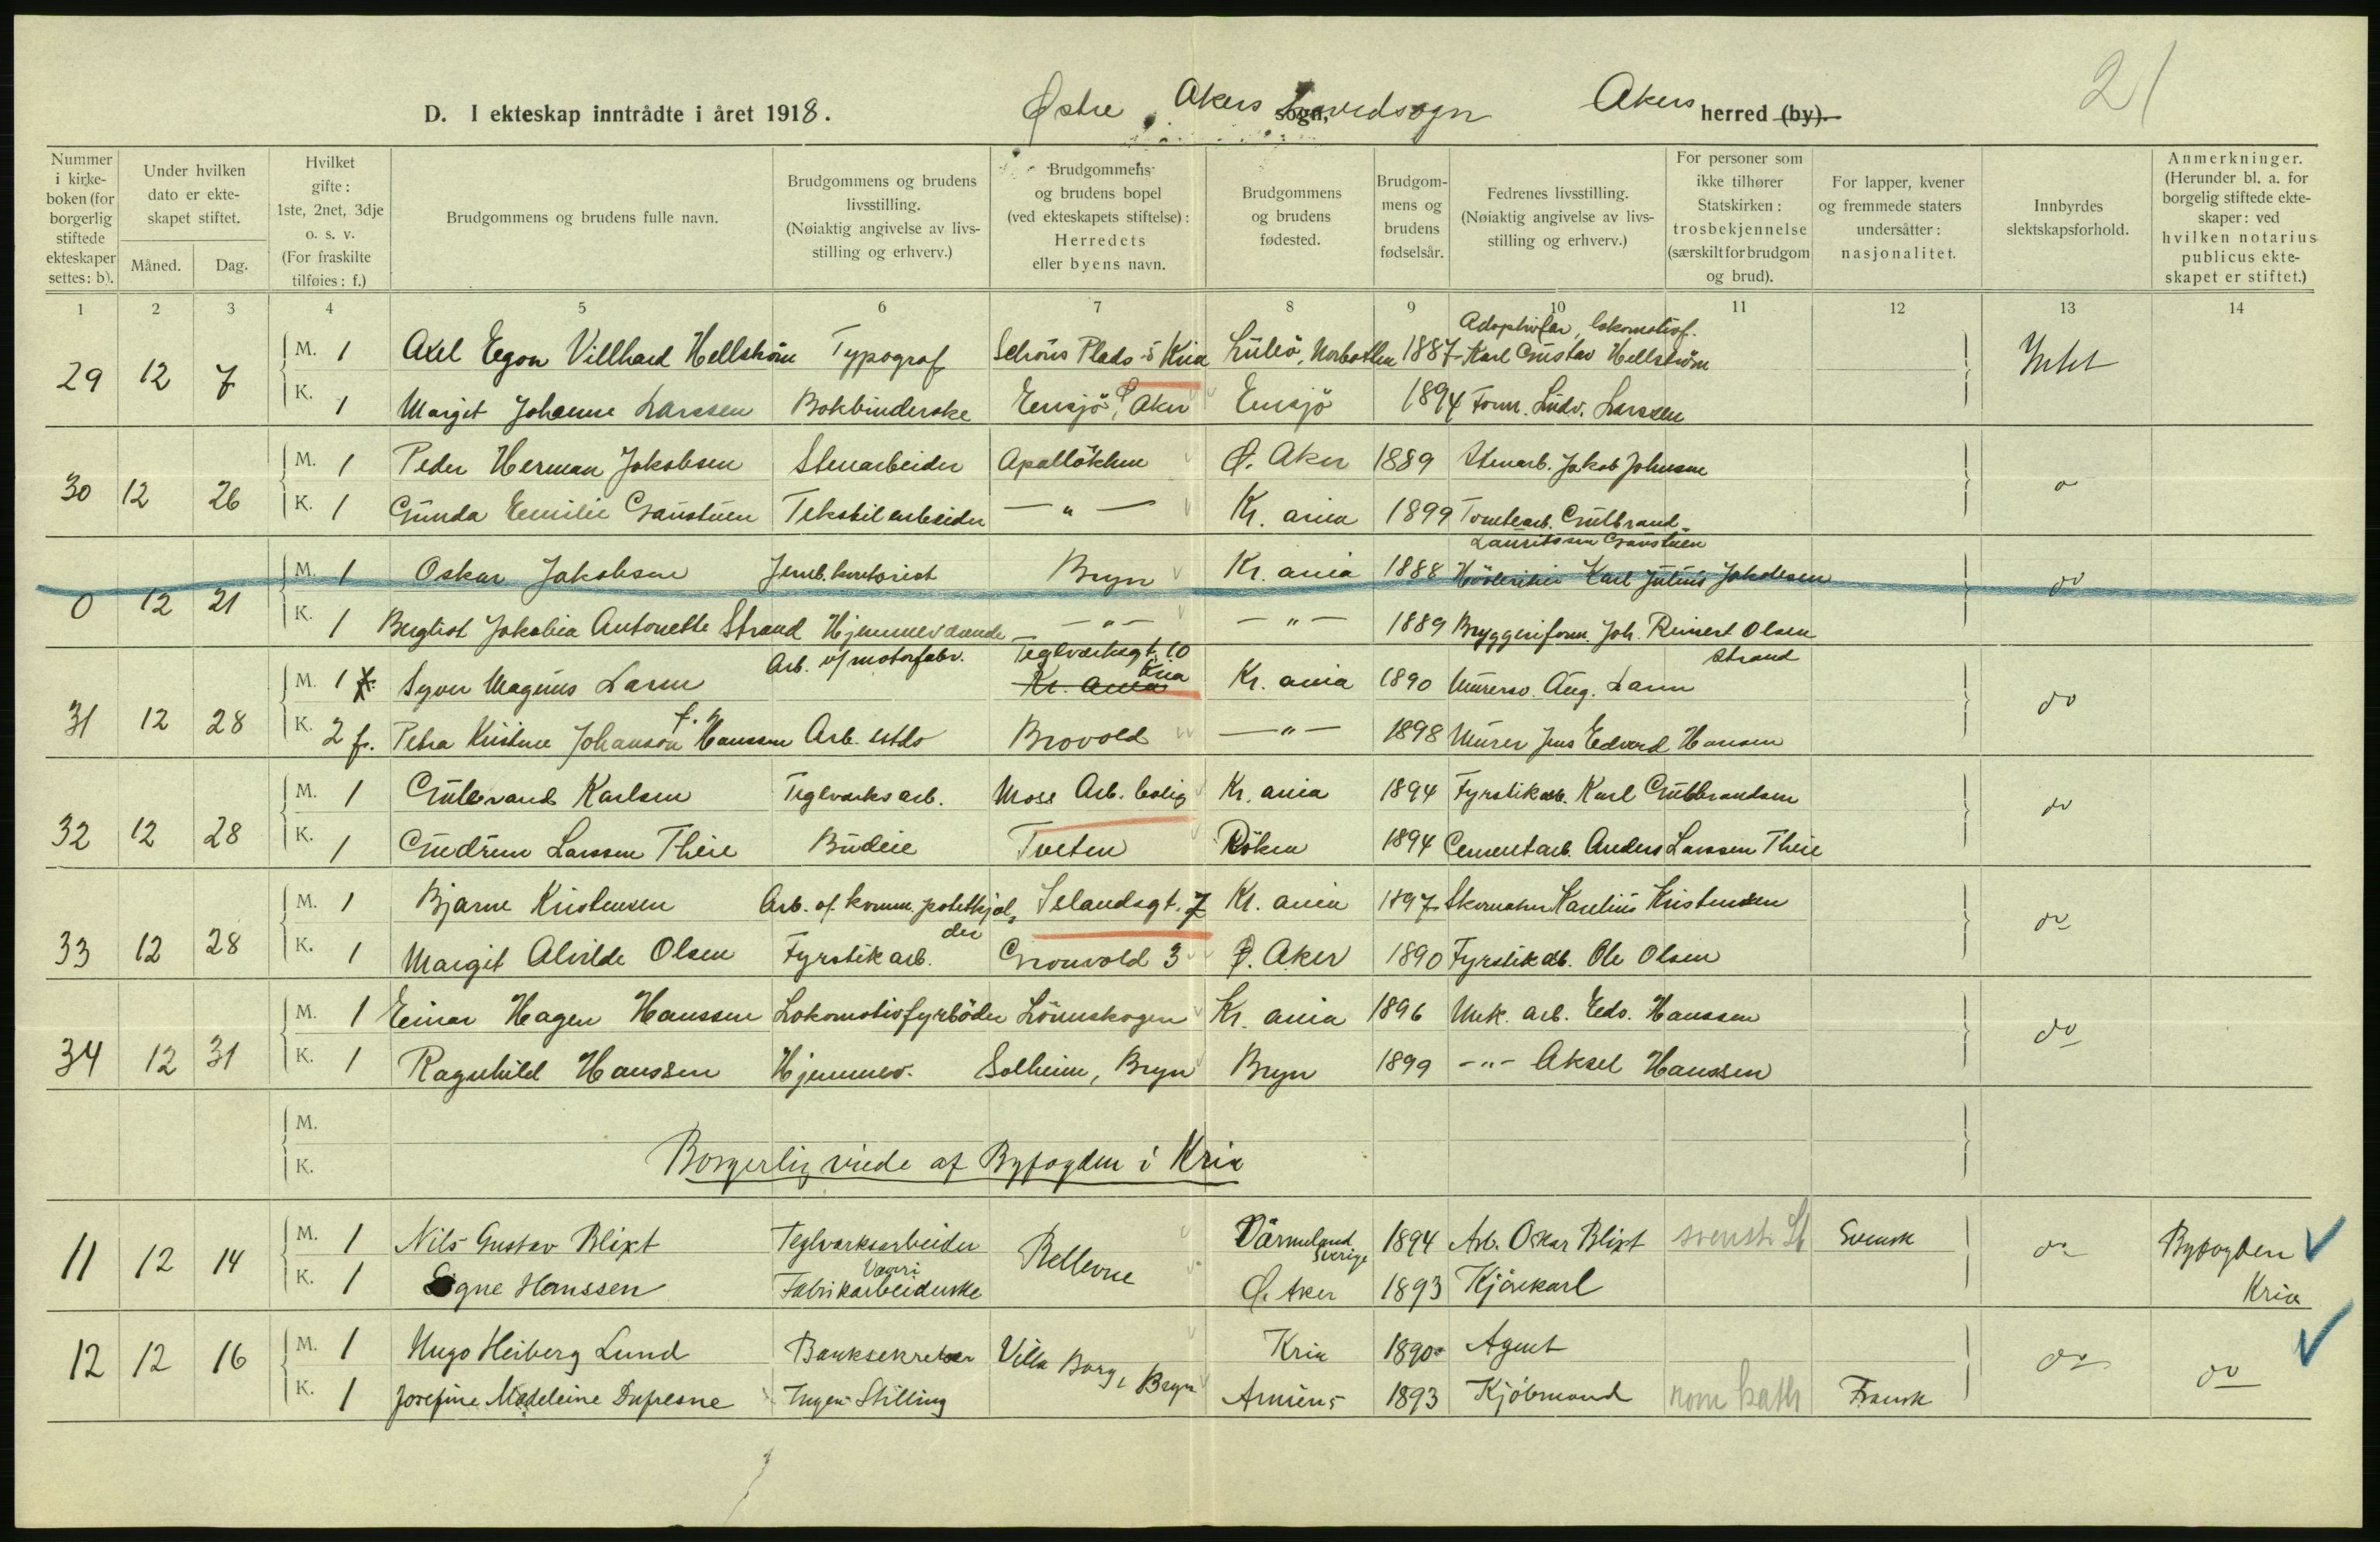 21
D. I ekteskap inntrådte i året 1918. Østre Akers sogn, hovedsogn Akers herred (by).
Nummer i kirke-boken (for borgerlig stiftede ekteskaper settes: b).
Under hvilken dato er ekte-skapet stiftet. Måned. Dag.
Hvilket gifte: 1ste, 2net, 3dje o. s. v. (For fraskilte tilføies: f.)
Brudgommens og brudens fulle navn.
Brudgommens og brudens livsstilling. (Nøiaktig angivelse av livs-stilling og erhverv.)
Brudgommens og brudens bopel (ved ekteskapets stiftelse): Herredets eller byens navn.
Brudgommens og brudens fødested.
Brudgom-mens og brudens fødselsår.
Fedrenes livsstilling. (Nøiaktig angivelse av livs-stilling og erhverv.)
For personer som ikke tilhører Statskirken: trosbekjennelse (særskilt for brudgom og brud).
For lapper, kvener og fremmede staters undersåtter: nasjonalitet.
Innbyrdes slektskapsforhold.
Anmerkninger. (Herunder bl. a. for borgelig stiftede ekte-skaper: ved hvilken notarius publicus ekte-skapet er stiftet.)
1 2 3 4 5 6 7 8 9 10 11 12 13 14
Adoptivfar, lokomotivf.
29 12 7 M. 1 Axel Egon Villhard Hellström Typograf Schous Plads 5 Kria Luleö, Norbotten 1887 Karl Gustav Hellström Intet
K. 1 Margit Johanne Larssen Bokbinderske Ensjö, Ø Aker Ensjö 1894 Form. Ludv. Larssen
30 12 26 M. 1 Peder Herman Jakobsen Stenarbeider Apalløkken Ø. Aker 1889 Stenarb. Jakob Johnsen o
K. 1 Gunda Emilie Gaustuen Tekstilarbeider — " — Kr. ania 1899 Tomtearb. Gulbrand
Lauritssen Gaustuen
0 12 21 M. 1 Oskar Jakobsen Jernb. kontorist Bryn Kr. ania 1888 Karl Julius Jakobsen do
K. 1 Bergliot Jakobea Antonette Strand Hjemmeværende — " — — " — 1889 Bryggeriform. Joh. Reinert Olsen
Strand
31 12 28 M. 1 f. Syver Magnus Larm Arb. v/ motorfabr. Teglverksgt. 10 Kria Kr. ania Kr. ania 1890 Murersv. Aug. Larm do
K. 2 f. Petra Kristine Johanson f. Hanssen Arb. estds Brovold — " — 1898 Murer Jens Edvard Hansen
32 12 28 M. 1 Gulbrand Karlsen Teglverksarb. Moss Arb. bolig Kr. ania 1894 Fyrstikarb. Karl Gulbrandsen do
K. 1 Gudrun Larssen Theie Budeie Tveten Röken 1894 Cementarb. Anders Larssen Theie
33 12 28 M. 1 Bjarne Kristensen Arb. v/ komm. potetkjel-der Selandsgt. 7 Kr. ania 1897 Skomaker Karelius Kristensen do
K. 1 Margit Alvilde Olsen Fyrstikarb. Grönvold 3 Ø. Aker 1890 Fyrstikarb. Ole Olsen
34 12 31 M. 1 Einar Hagen Hanssen Lokomotivfyrböder Lörenskogen Kr. ania 1896 Mek. arb. Edv. Hanssen do
K. 1 Ragnhild Hanssen Hjemmev. Solheim, Bryn Bryn 1899 — " — Aksel Hanssen
M.
K. Borgerlig viede af Byfogden i Kria
11 12 14 M. 1 Nils Gustav Blixt Teglverksarbeider Bellevue Värmland Sverige 1894 Arb. Oskar Blixt svensk St Svensk do Byfogden
K. 1 Signe Hanssen Fabrikarbeiderske Ø. Aker 1893 Kjörekarl Kria
12 12 16 M. 1 Hugo Heiberg Lund Banksekretær Villa Borg, Bryn Kria 1890 Agent do do
K. 1 Josefine Madeleine Dufresne Ingen Stilling Amiens 1893 Kjöbmand rom kath Fransk